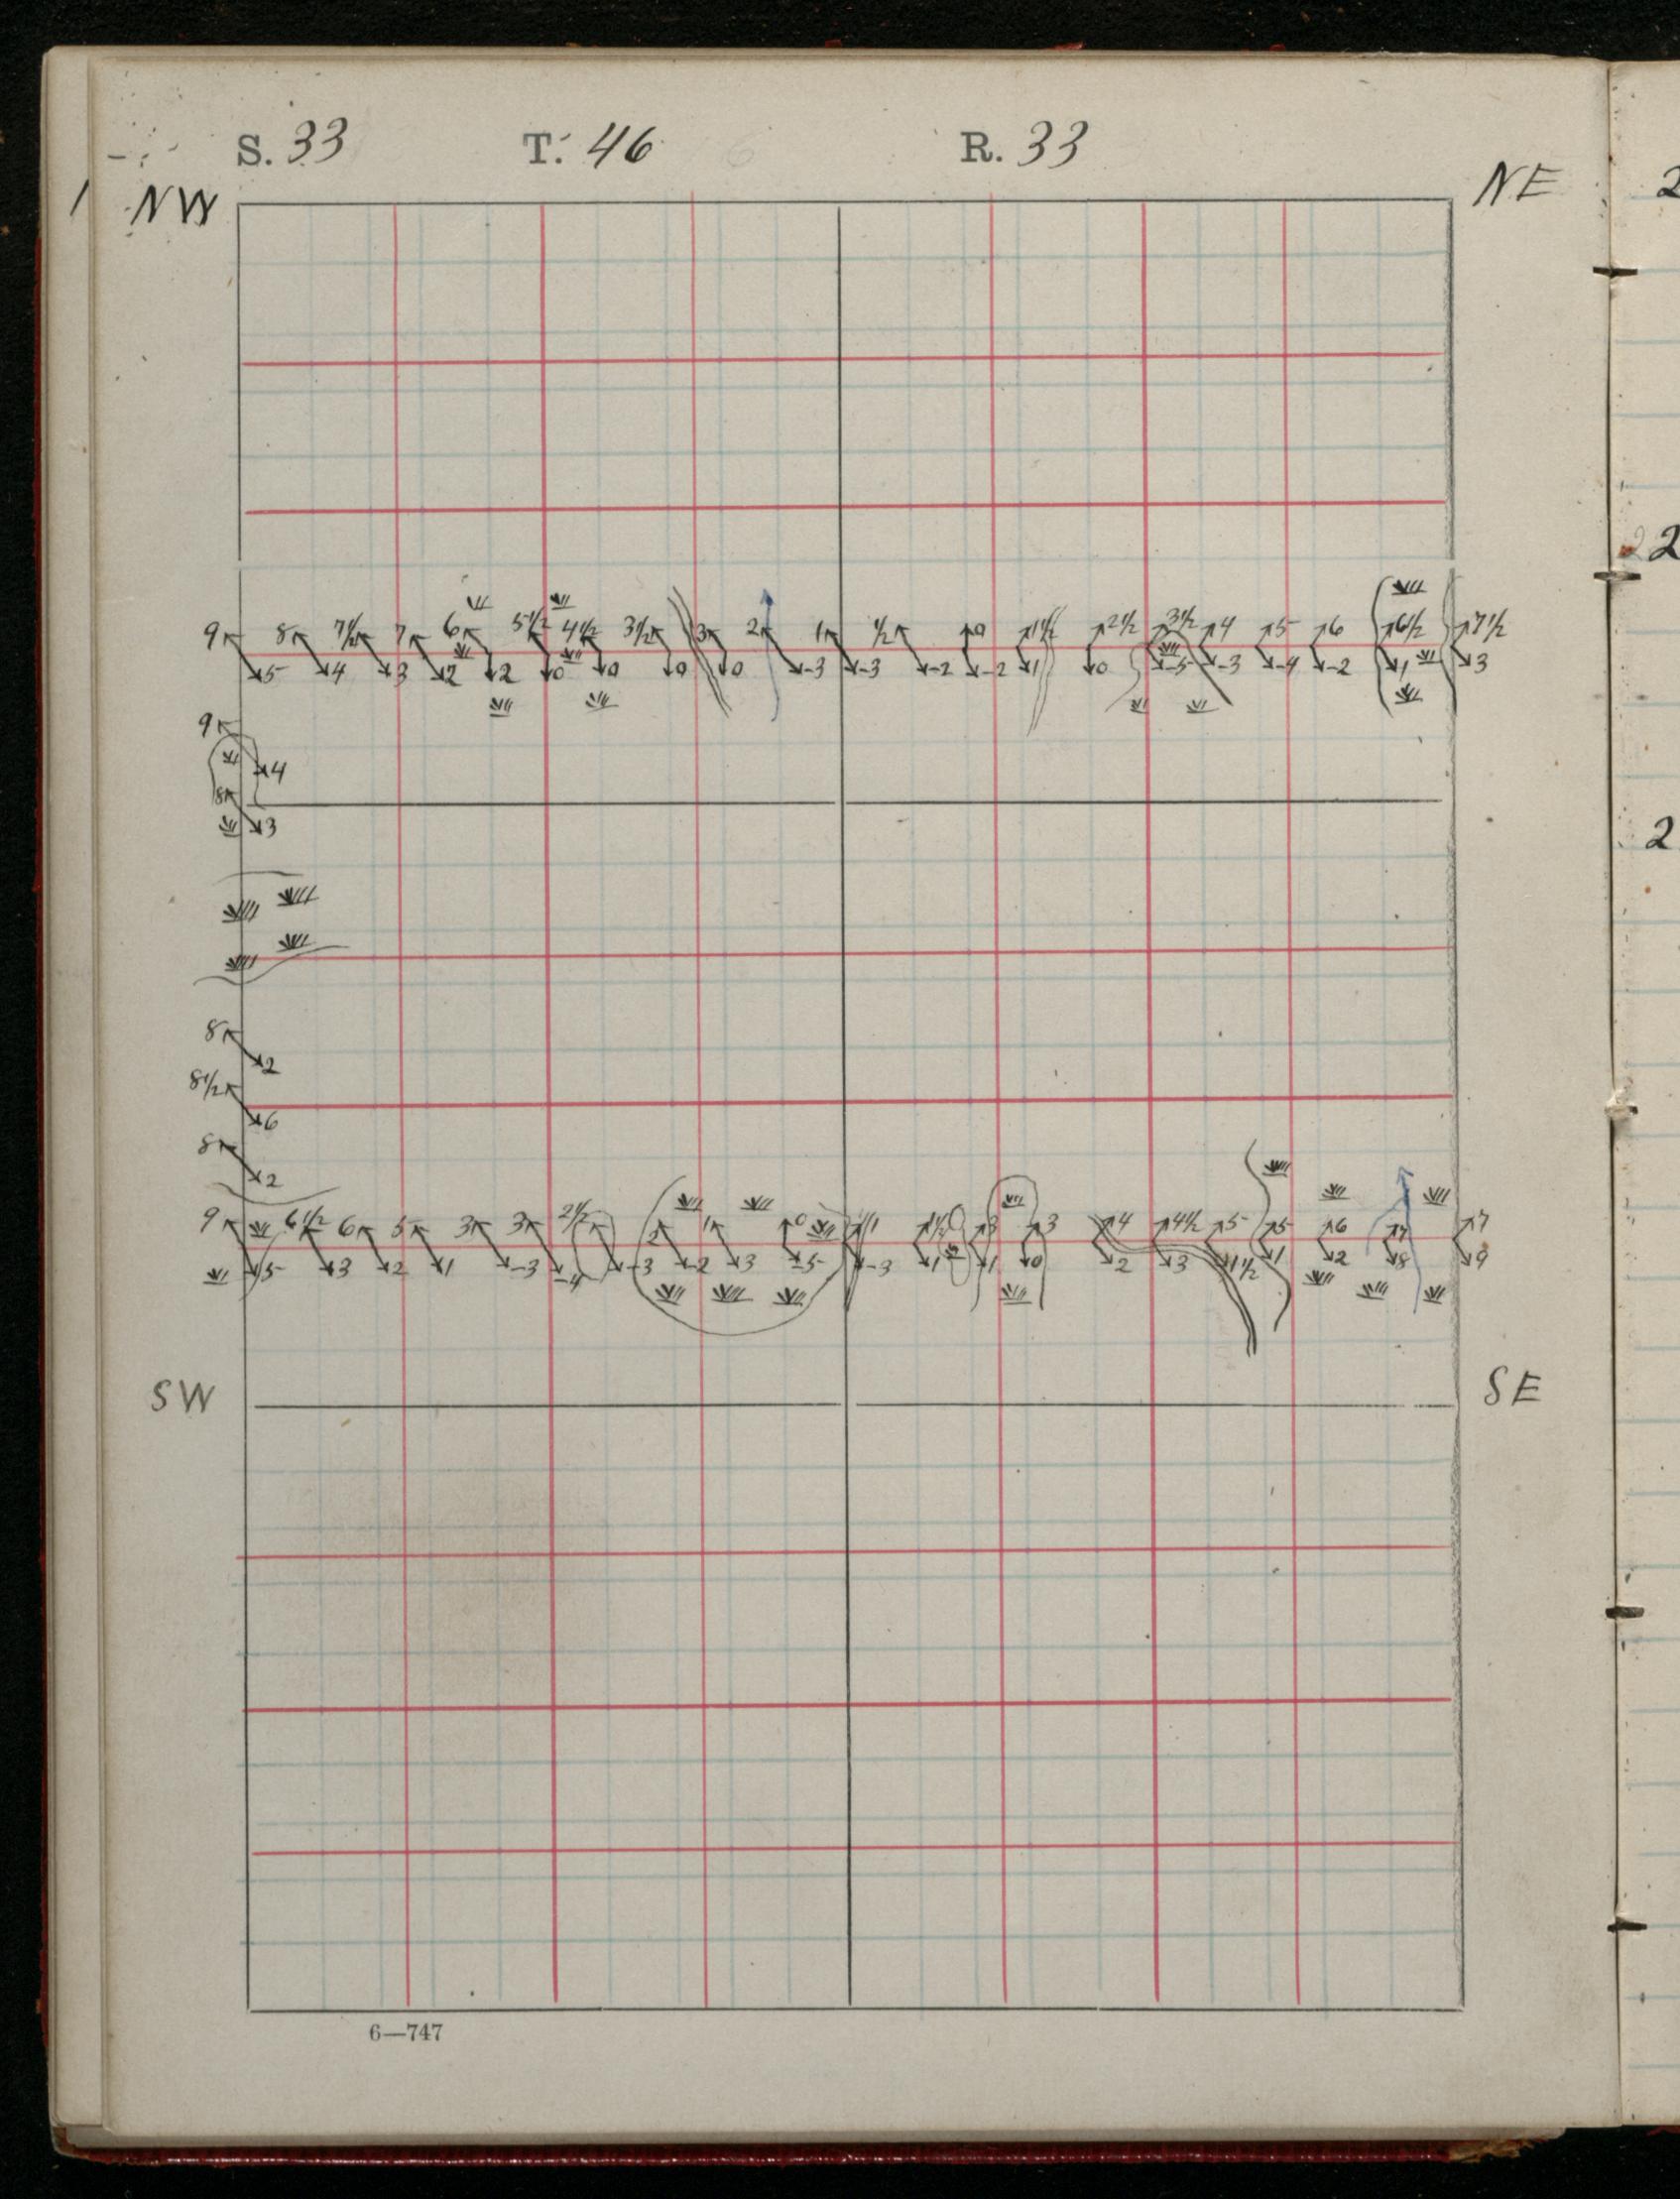 S. 33 T. 46 R. 33
1 NW NE 2
22
9 8 7½ 7 6 5½ 4½ 3½ 3 2 1 ½ 0 1½ 2½ 3½ 4 5 6 6½ 7½
5 4 3 2 2 0 0 0 0 -3 -3 -2 -2 1 0 -5 -3 -4 -2 1 3
9
4
8
3
2
8
2
8½
6
8
2
9 6½ 6 5 3 3 2½ 2 1 0 1 1½ 3 3 4 4½ 5 5 6 7 7
5 3 2 1 -3 -4 -3 -2 3 -5 -3 1 1 0 2 3 1½ 1 2 8 9
SW SE
6—747